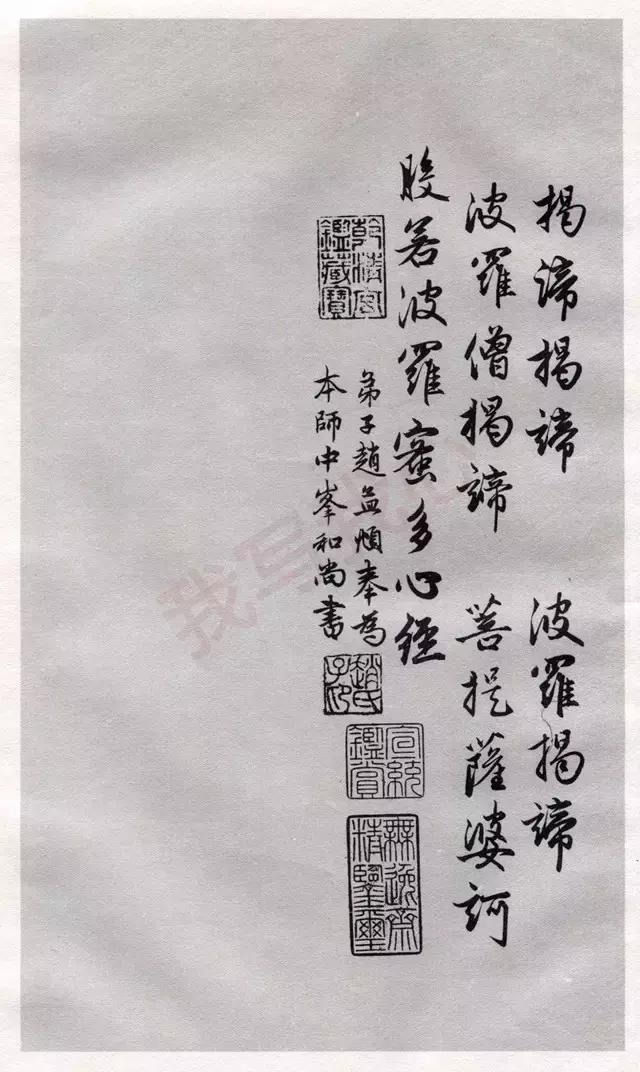 揭諦揭諦 波羅揭諦
波羅僧揭諦 菩提薩婆訶
般若波羅蜜多心經
弟子趙孟頫奉為
本師中峯和尚書
乾清宮
鑑藏寶
趙氏
子昂
宣統
鑑賞
無逸齋
精鑒璽
我写